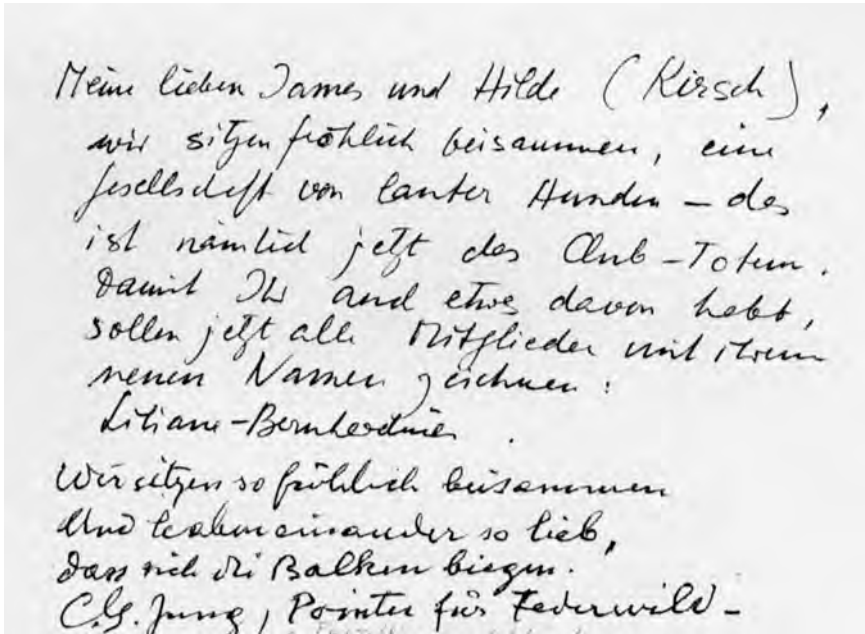 Meine lieben James und Hilde (Kirsch),
wir sitzen fröhlich beisammen, eine
Gesellschaft von lauter Hunden – das
ist nämlich jetzt das Club-Totem.
Damit Ihr auch etwas davon habt,
sollen jetzt alle Mitglieder mit ihrem
neuen Namen zeichnen:
Liliane-Bernhardiner.
Wir sitzen so fröhlich beisammen
Und haben einander so lieb,
dass sich die Balken biegen.
C.G. Jung, Pointer für Federwild –